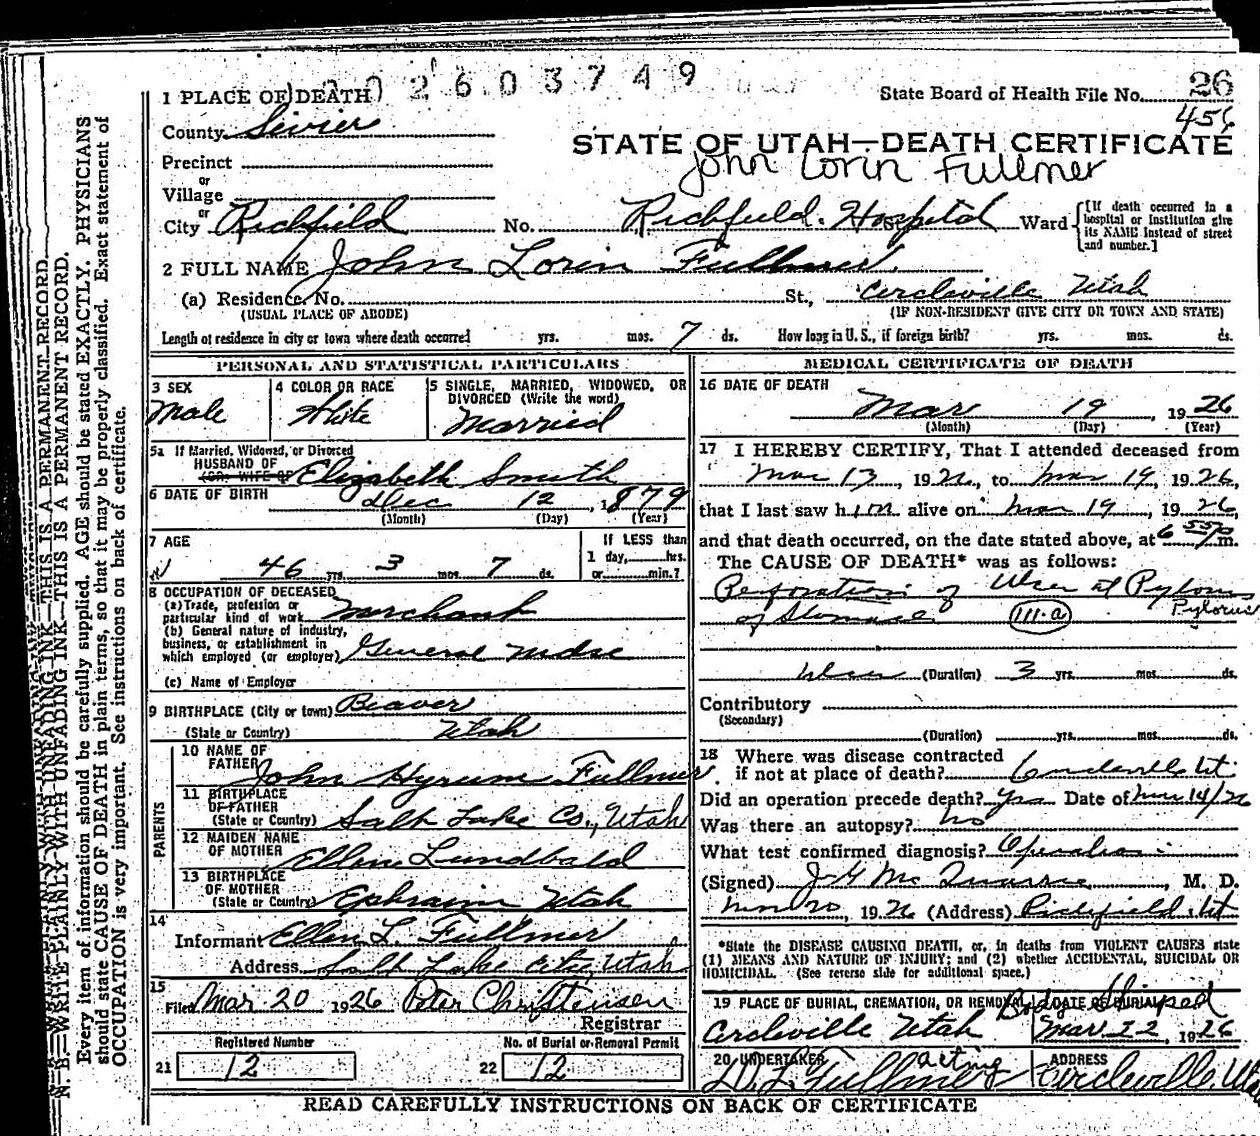 2603749
State Board of Health File No. 26
456
1 PLACE OF DEATH
County Sevier
STATE OF UTAH—DEATH CERTIFICATE
John Lorin Fullmer
Precinct
or
Village
or
City Richfield No. Richfield Hospital St. Ward
[If death occurred in a hospital or institution give its NAME instead of street and number.]
2 FULL NAME John Lorin Fullmer
(a) Residence, No. St., Circleville Utah
(USUAL PLACE OF ABODE) (IF NON-RESIDENT GIVE CITY OR TOWN AND STATE)
Length of residence in city or town where death occurred yrs. mos. 7 ds. How long in U. S., if foreign birth? yrs. mos. ds.
PERSONAL AND STATISTICAL PARTICULARS
3 SEX
Male
4 COLOR OR RACE
White
5 SINGLE, MARRIED, WIDOWED, OR
DIVORCED (Write the word)
Married
5a If Married, Widowed, or Divorced
HUSBAND OF
(OR) WIFE OF Elizabeth Smith
6 DATE OF BIRTH Dec 12, 1879
(Month) (Day) (Year)
7 AGE
46 yrs. 3 mos. 7 ds.
If LESS than
1 day, hrs.
or min.?
8 OCCUPATION OF DECEASED
(a) Trade, profession or
particular kind of work Merchant
(b) General nature of industry,
business, or establishment in
which employed (or employer) General Mdse
(c) Name of Employer
9 BIRTHPLACE (City or town) Beaver
(State or Country) Utah
PARENTS
10 NAME OF
FATHER John Hyrum Fullmer
11 BIRTHPLACE
OF FATHER
(State or Country) Salt Lake Co., Utah
12 MAIDEN NAME
OF MOTHER Ellen Lundbald
13 BIRTHPLACE
OF MOTHER
(State or Country) Ephraim Utah
14
Informant Ellen L. Fullmer
Address Salt Lake City, Utah
15
Filed Mar 20 1926 Peter Christensen
Registrar
Registered Number
21 12
No. of Burial or Removal Permit
22 12
MEDICAL CERTIFICATE OF DEATH
16 DATE OF DEATH
Mar 19, 1926
(Month) (Day) (Year)
17 I HEREBY CERTIFY, That I attended deceased from
Mar 13, 1926, to Mar 19, 1926,
that I last saw him alive on Mar 19, 1926,
and that death occurred, on the date stated above, at 6 55 p m.
The CAUSE OF DEATH* was as follows:
Perforation of Ulcer at Pylorus
Pylorus
of Stomach 111-a
Ulcer (Duration) 3 yrs. mos. ds.
Contributory
(Secondary)
(Duration) yrs. mos. ds.
18 Where was disease contracted
if not at place of death? Circleville Ut.
Did an operation precede death? Yes Date of Mar 14/26
Was there an autopsy? No
What test confirmed diagnosis? Operation
(Signed) J G Mc Quarrie, M. D.
Mar 20, 1926 (Address) Richfield Ut
*State the DISEASE CAUSING DEATH, or, in deaths from VIOLENT CAUSES state
(1) MEANS AND NATURE OF INJURY; and (2) whether ACCIDENTAL, SUICIDAL OR
HOMICIDAL. (See reverse side for additional space.)
19 PLACE OF BURIAL, CREMATION, OR REMOVAL DATE OF BURIAL
Body Shipped
Circleville Utah Mar 22, 1926
20 UNDERTAKER ADDRESS
acting
D. L. Fullmer Circleville, Ut
READ CAREFULLY INSTRUCTIONS ON BACK OF CERTIFICATE
N. B.—WRITE PLAINLY WITH UNFADING INK—THIS IS A PERMANENT RECORD.
Every item of information should be carefully supplied. AGE should be stated EXACTLY. PHYSICIANS
should state CAUSE OF DEATH in plain terms, so that it may be properly classified. Exact statement of
OCCUPATION is very important. See instructions on back of certificate.